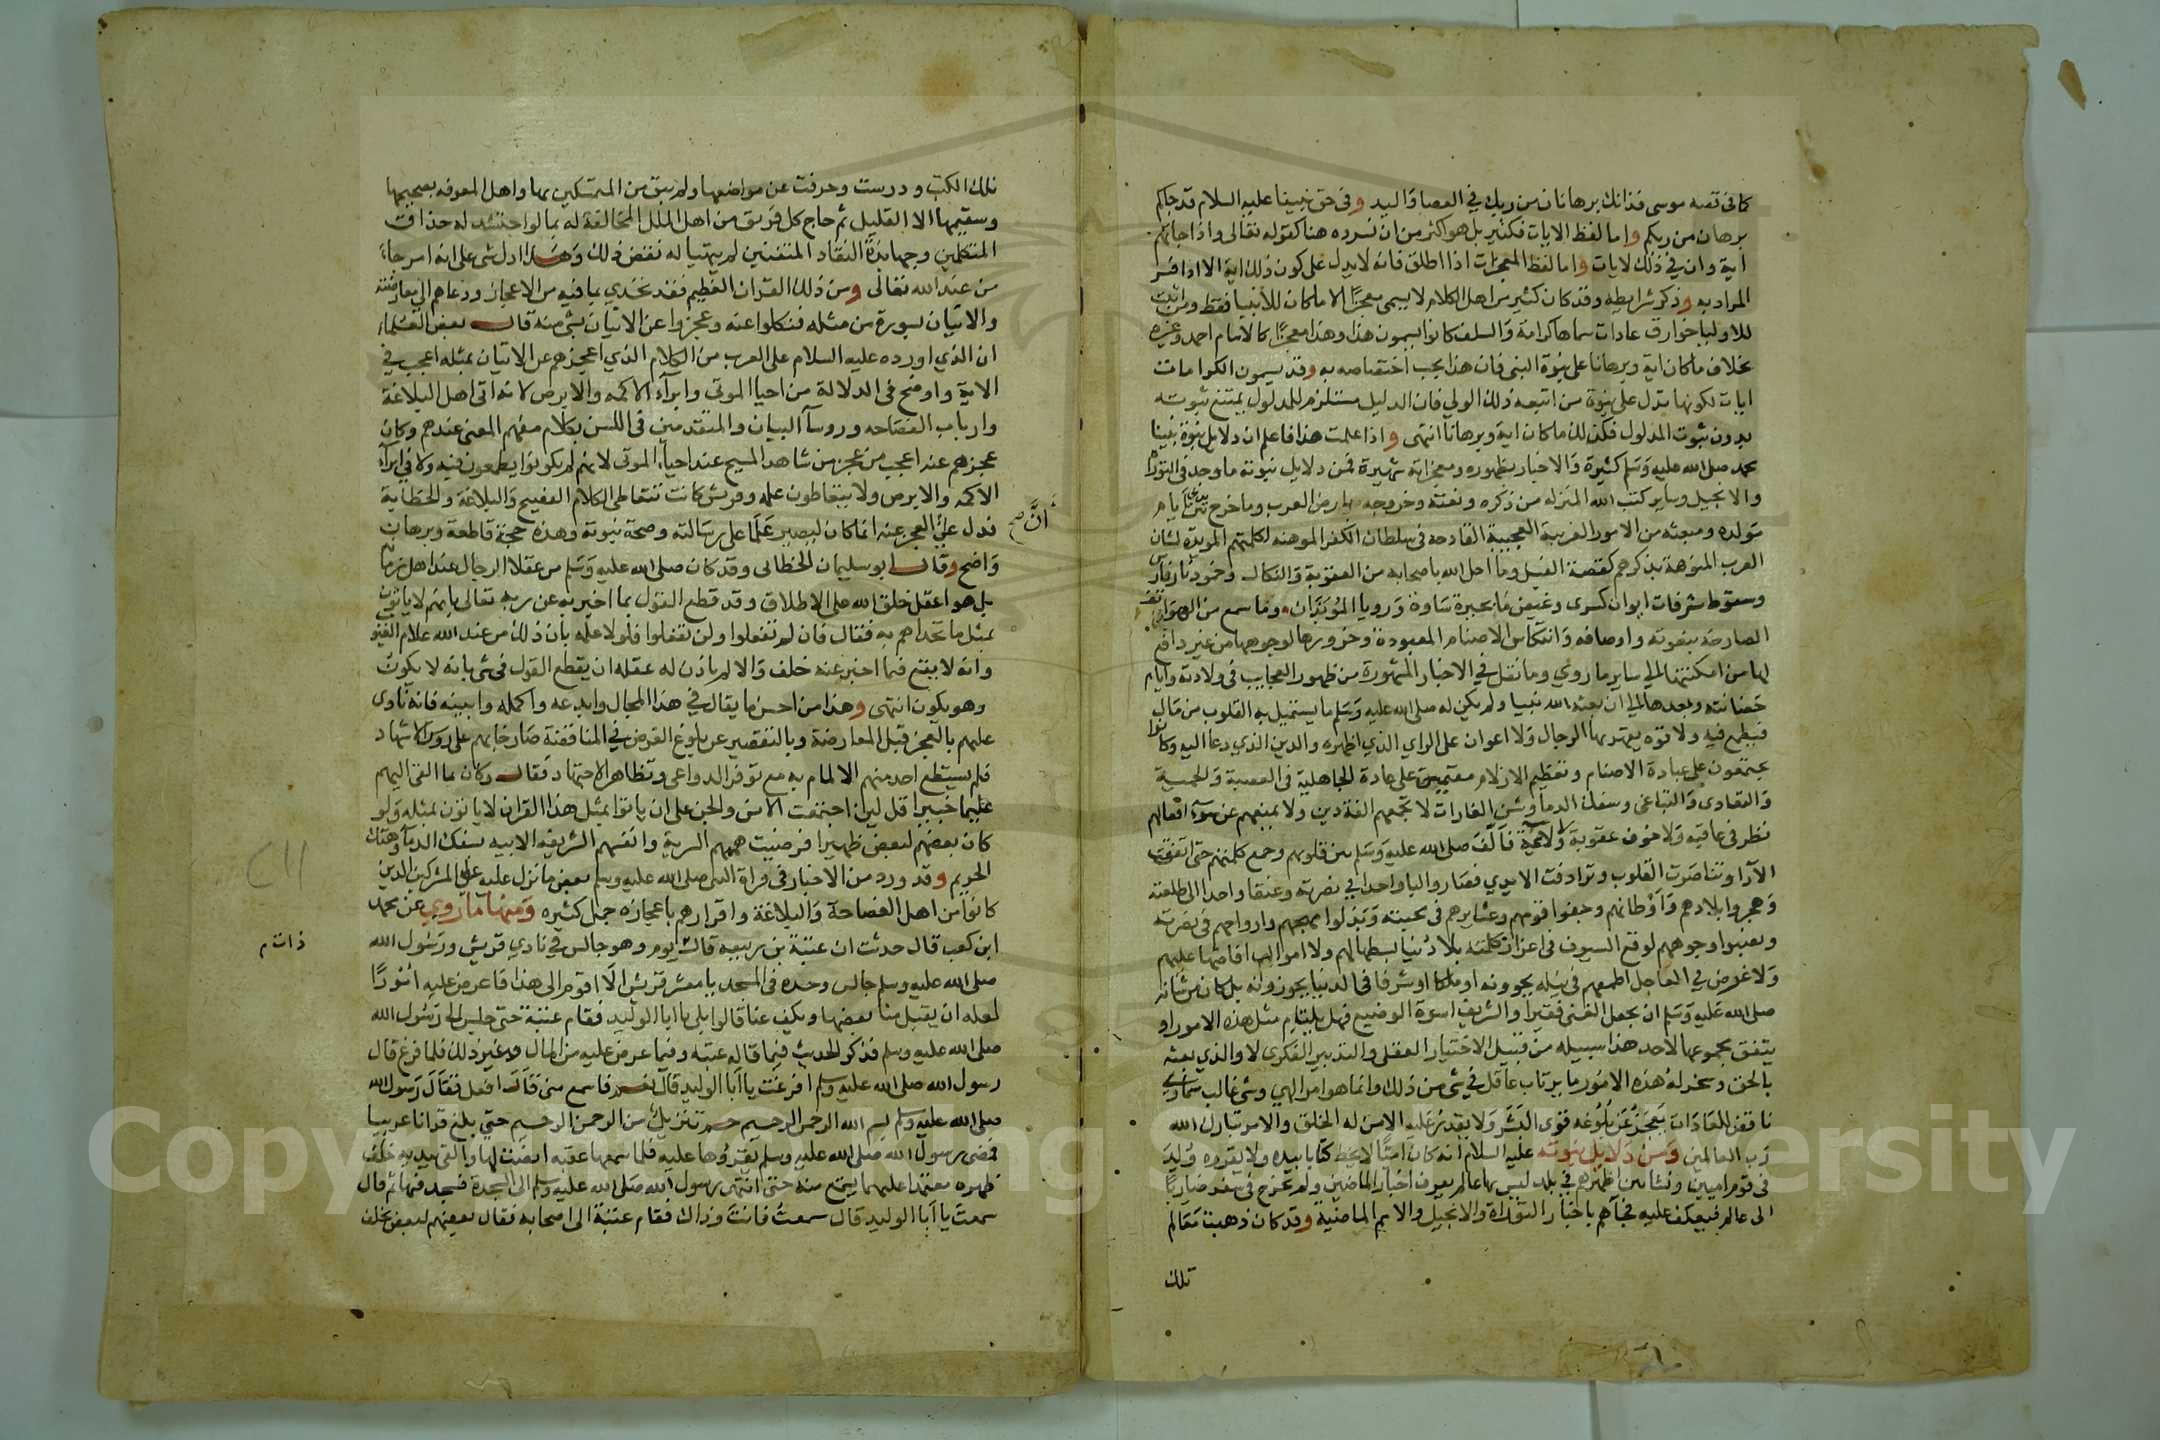 كما في قصه موسى فذانك برهانان من ربك في العصا واليد وفي حق نبينا عليه السلام قد جاكم
برهان من ربكم واما لفظ الايات فكثير بل هو اكثر من ان نسرده هنا كقوله تعالى واذا جاتهم
اية وان في ذلك لايات واما لفظ المعجزات اذا اطلق فانه لا يدل على كون ذلك اية الا اذا فسر
المراد به وذكر شرايطه وقد كان كثير من اهل الكلام لا يسمى معجزا الا ما كان للأنبيا فقط ومن اثبت
للاوليا خوارق عادات سماها كرامة والسلف كانوا يسمون هذا وهذا معجزا كالامام احمد وغيره
بخلاف ما كان اية وبرهانا على نبوة النبي فان هذا يجب اختصاصه به وقد يسمون الكرامات
ايات لكونها تدل على نبوة من اتبعه ذلك الولي فان الدليل مستلزم للمدلول يمتنع ثبوته
بدون ثبوت المدلول فكذلك ما كان اية وبرهانا انتهى واذا علمت هذا فاعلم ان دلايل نبوة نبينا
محمد صلى الله عليه وسلم كثيرة والاخبار بظهوره ومعجزاته شهيرة فمن دلايل نبوته ما وجد في التوراة
والانجيل وساير كتب الله المنزله من ذكره ونعته وخروجه بارض العرب وما خرج بين يدي ايام
مولده ومبعثه من الامور الغريبة العجيبة القادحه في سلطان الكفر الموهنه لكلمتهم المويدة لشان
العرب المنوهة بذكرهم كقصة الفيل وما احل الله باصحابه من العقوبة والنكال وخمود نار فارس
وسقوط شرفات ايوان كسرى وغيض ما بحيرة ساوة ورويا الموبذان وما سمع من الهواتف
الصارخة بنعوته واوصافه وانتكاس الاصنام المعبودة وخرورها لوجوهها من غير دافع
لها من امكنتها الي ساير ما روي وما نقل في الاخبار المشهورة من ظهور العجايب في ولادته وايام
حضانته وبعدها الي ان بعثه الله نبيا ولم يكن له صلى الله عليه وسلم ما يستميل به القلوب من مال
فيطمع فيه ولا قوه يقهر بها الرجال ولا اعوان على الراي الذي اظهره والدين الذي دعا اليه وكانوا
يجتمعون على عبادة الاصنام وتعظيم الازلام مقيمين على عادة الجاهلية في العصبية والحمية
والتعادى والتباغى وسفك الدما وشن الغارات لا تجمعهم الفة دين ولا يمنعهم عن سوء افعالهم
نظر في عاقبه ولا خوف عقوبة ولا لائمة فألف صلى الله عليه وسلم بين قلوبهم وجمع كلمتهم حتى اتفقت
الآرا وتناصرت القلوب وترادفت الايدي فصاروا البا واحدا في نصرته وعنقا واحدا الي طلعته
وهجروا بلادهم وأوطانهم وجفوا قومهم وعشايرهم في محبته وبذلوا مهجهم وارواحهم في نصرته
ونصبوا وجوههم لوقع السيوف في اعزاز كلمته بلا دنيا بسطها لهم ولا اموال افاضها عليهم
ولا غرض في العاجل اطمعهم في نيله يحوونه او ملكا او شرفا في الدنيا يحوزونه بل كان من شانه
صلى الله عليه وسلم ان يجعل الغني فقيرا والشريف اسوة الوضيع فهل يلتام مثل هذه الامور او
يتفق مجموعها لاحد هذا سبيله من قبيل الاختيار العقلي والتدبير الفكري لا والذي بعثه
بالحق وسخر له هذه الامور ما يرتاب عاقل في شي من ذلك وانما هو امر الهي وشي غالب سماوي
ناقض للعادات يعجز عن بلوغه قوى البشر ولا يقدر عليه الا من له الخلق والامر تبارك الله
رب العالمين ومن دلايل نبوته عليه السلام أنه كان أميا لا يخط كتابا بيده ولا يقروه ولد
في قوم اميين ونشا بين اظهرهم في بلد ليس بها عالم يعرف اخبار الماضين ولم يخرج في سفر ضاربا
الى عالم فيعكف عليه فجآهم باخبار التوراة والانجيل والامم الماضية وقد كان ذهبت معالم
تلك
تلك الكتب ودرست وحرفت عن مواضعها ولم يبق من المتمسكين بها واهل المعرفه بصحيحها
وسقيمها الا القليل ثم حاج كل فريق من اهل الملل المخالفة له بما لو احتشد له حذاق
المتكلمين وجهابذة النقاد المتفننين لم يتهيا له نقض ذلك وهذا ادل شي على انه امر جاء
من عند الله تعالى ومن ذلك القران العظيم فقد تحدي بما فيه من الاعجاز ودعاهم الي معارضته
والاتيان بسورة من مثله فنكلوا عنه وعجزوا عن الاتيان بشي منه قال بعض العلماء
ان الذي اورده عليه السلام على العرب من الكلام الذي اعجزهم عن الاتيان بمثله اعجب في
الاية واوضح في الدلالة من احيا الموتى وابرآء الاكمه والابرص لانه اتى اهل البلاغة
وارباب الفصاحه وروسآ البيان والمتقدمين في اللسن بكلام مفهم المعنى عندهم وكان
عجزهم عنه اعجب من عجز من شاهد المسيح عند احياء الموتى لانهم لم يكونوا يطمعون فيه ولا في ابرآء
الاكمه والابرص ولا يتعاطون علمه وقريش كانت تتعاطى الكلام الفصيح والبلاغة والخطابة
فدل على العجز عنه انما كان ليصير علما على رسالته وصحة نبوته وهذه حجة قاطعة وبرهان
أنَّ صح
واضح وقال ابو سليمان الخطابي وقد كان صلى الله عليه وسلم من عقلا الرجال عند اهل زمانه
بل هو اعقل خلق الله على الاطلاق وقد قطع القول بما اخبر به عن ربه تعالى بانهم لا ياتون
بمثل ما تحداهم به فقال فان لم تفعلوا ولن تفعلوا فلولا علمه بأن ذلك من عند الله علام الغيوب
وانه لا يقع فيما اخبر عنه خلف والا لم ياذن له عقله ان يقطع القول في شي بانه لا يكون
وهو يكون انتهى وهذا من احسن ما يقال في هذا المجال وابدعه واكمله وابينه فانه نادى
عليهم بالعجز قبل المعارضة وبالتقصير عن بلوغ الغرض في المناقضة صارخا بهم على روس الاشهاد
فلم يستطع احد منهم الالمام به مع توفر الدواعى وتظاهر الاجتهاد فقال وكان بما القى اليهم
عليما خبيرا قل لين اجتمعت الانس والجن على ان ياتوا بمثل هذا القران لا ياتون بمثله ولو
كان بعضهم لبعض ظهيرا فرضيت هممهم السرية وانفسهم الشريفه الابيه بسفك الدمآ وهتك
الحريم وقد ورد من الاخبار في قراة النبي صلى الله عليه وسلم بعض ما نزل عليه على المشركين الذين
كانوا من اهل الفصاحة والبلاغة واقرارهم باعجازه جمل كثيره ومنها ما روي عن محمد
ابن كعب قال حدثت ان عتبة بن ربيعه قال يوم وهو جالس في نادي قريش ورسول الله
ذات م
صلى الله عليه وسلم جالس وحده في المسجد يا معشر قريش الا اقوم الى هذا فاعرض عليه امورا
لعله ان يقبل منا بعضها ويكف عنا قالوا بلى يا ابا الوليد فقام عتبة حتى جلس الى رسول الله
صلى الله عليه وسلم فذكر الحديث فيما قاله عتبه وفيما عرض عليه من المال وغير ذلك فلما فرغ قال
رسول الله صلى الله عليه وسلم افرغت يا أبا الوليد قال نعم قال فاسمع مني قال افعل فقال رسول الله
صلى الله عليه وسلم بسم الله الرحمن الرحيم حم تنزيل من الرحمن الرحيم حتى بلغ قرانا عربيا
فمضى رسول الله صلى الله عليه وسلم يقروها عليه فلما سمعها عتبه انصت لها والقى بيديه خلف
ظهره معتمدا عليهما يسمع منه حتى انتهى رسول الله صلى الله عليه وسلم الى السجدة فسجد فيها ثم قال
سمعت يا أبا الوليد قال سمعت فانت وذاك فقام عتبة الى اصحابه فقال بعضهم لبعض نحلف
Copyright © King Saud University